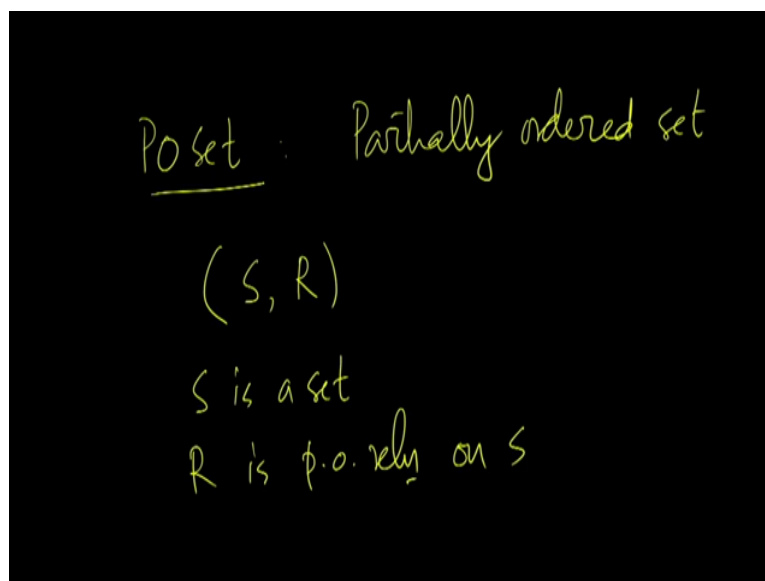 Poset : Partially ordered set
(S, R)
S is a set
R is p.o. reln on S